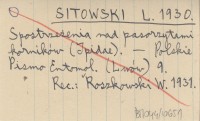 SITOWSKI L. 1930.
Spostrzeżenia nad pasorzytami
korników (Ipidae). — Polskie
Pismo Entomol. (Lwów) 9.
Rec.: Roszkowski W. 1931.